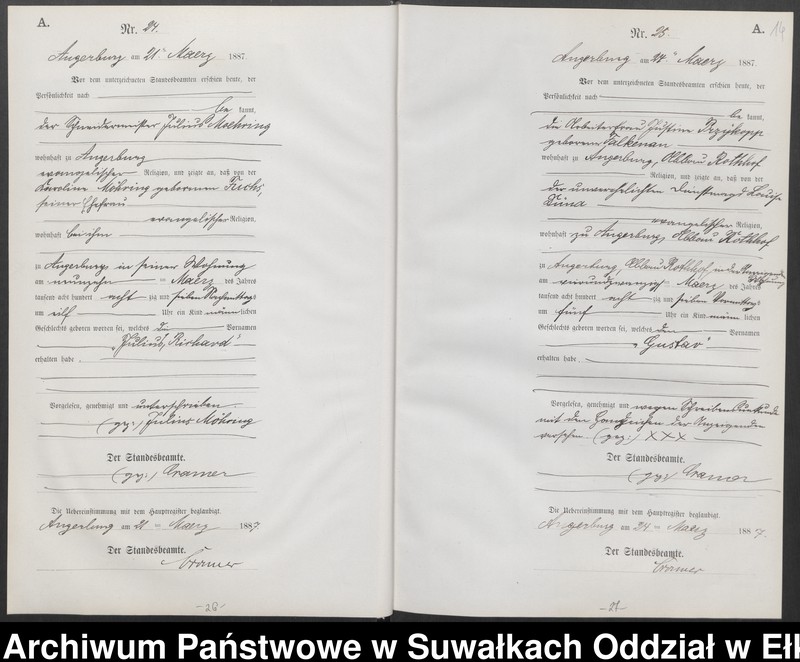 A.
Nr. 24.
Angerburg am 21ten Maerz 1887.
Vor dem unterzeichneten Standesbeamten erschien heute, der
Persönlichkeit nach
be kannt,
der Schneidermeister Julius Moehring
wohnhaft zu Angerburg
evangelischer Religion, und zeigte an, daß von der
Karoline Möhring geborenen Fuchs,
seiner Ehefrau
evangelischer Religion,
wohnhaft bei ihm
zu Angerburg in seiner Wohnung
am neunzehn ten Maerz des Jahres
tausend acht hundert acht zig und sieben Nachmittags
um eilf Uhr ein Kind männ lichen
Geschlechts geboren worden sei, welches die Vornamen
„Julius, Richard“
erhalten habe.
Vorgelesen, genehmigt und unterschrieben
(gez:) Julius Möhring
Der Standesbeamte.
(gez:) Cramer
Die Uebereinstimmung mit dem Hauptregister beglaubigt.
Angerburg am 21 ten Maerz 1887
Der Standesbeamte.
Cramer
-26-
A.
14
Nr. 25.
Angerburg am 24ten Maerz 1887.
Vor dem unterzeichneten Standesbeamten erschien heute, der
Persönlichkeit nach
be kannt,
die Arbeiterfrau Justine Przykopp
geborene Falkenau
wohnhaft zu Angerburg, Abbau Rothhof
Religion, und zeigte an, daß von der
der unverehelichten Dienstmagd Louise
evangelischer Religion,
wohnhaft zu Angerburg, Abbau Rothhof
zu Angerburg, Abbau Rothhof, in der
Wohnung
am vierundzwanzig ten Maerz des Jahres
tausend acht hundert acht zig und sieben Vormittags
um fünf Uhr ein Kind männ lichen
Geschlechts geboren worden sei, welches den Vornamen
„Gustav“
erhalten habe.
Vorgelesen, genehmigt und wegen Schreibensunkunde
mit den Handzeichen der Anzeigenden
versehen (gez:) XXX
Der Standesbeamte.
(gez:) Cramer
Die Uebereinstimmung mit dem Hauptregister beglaubigt.
Angerburg am 24 ten Maerz 1887.
Der Standesbeamte.
Cramer
-27-
Archiwum Państwowe w Suwałkach Oddział w Eł